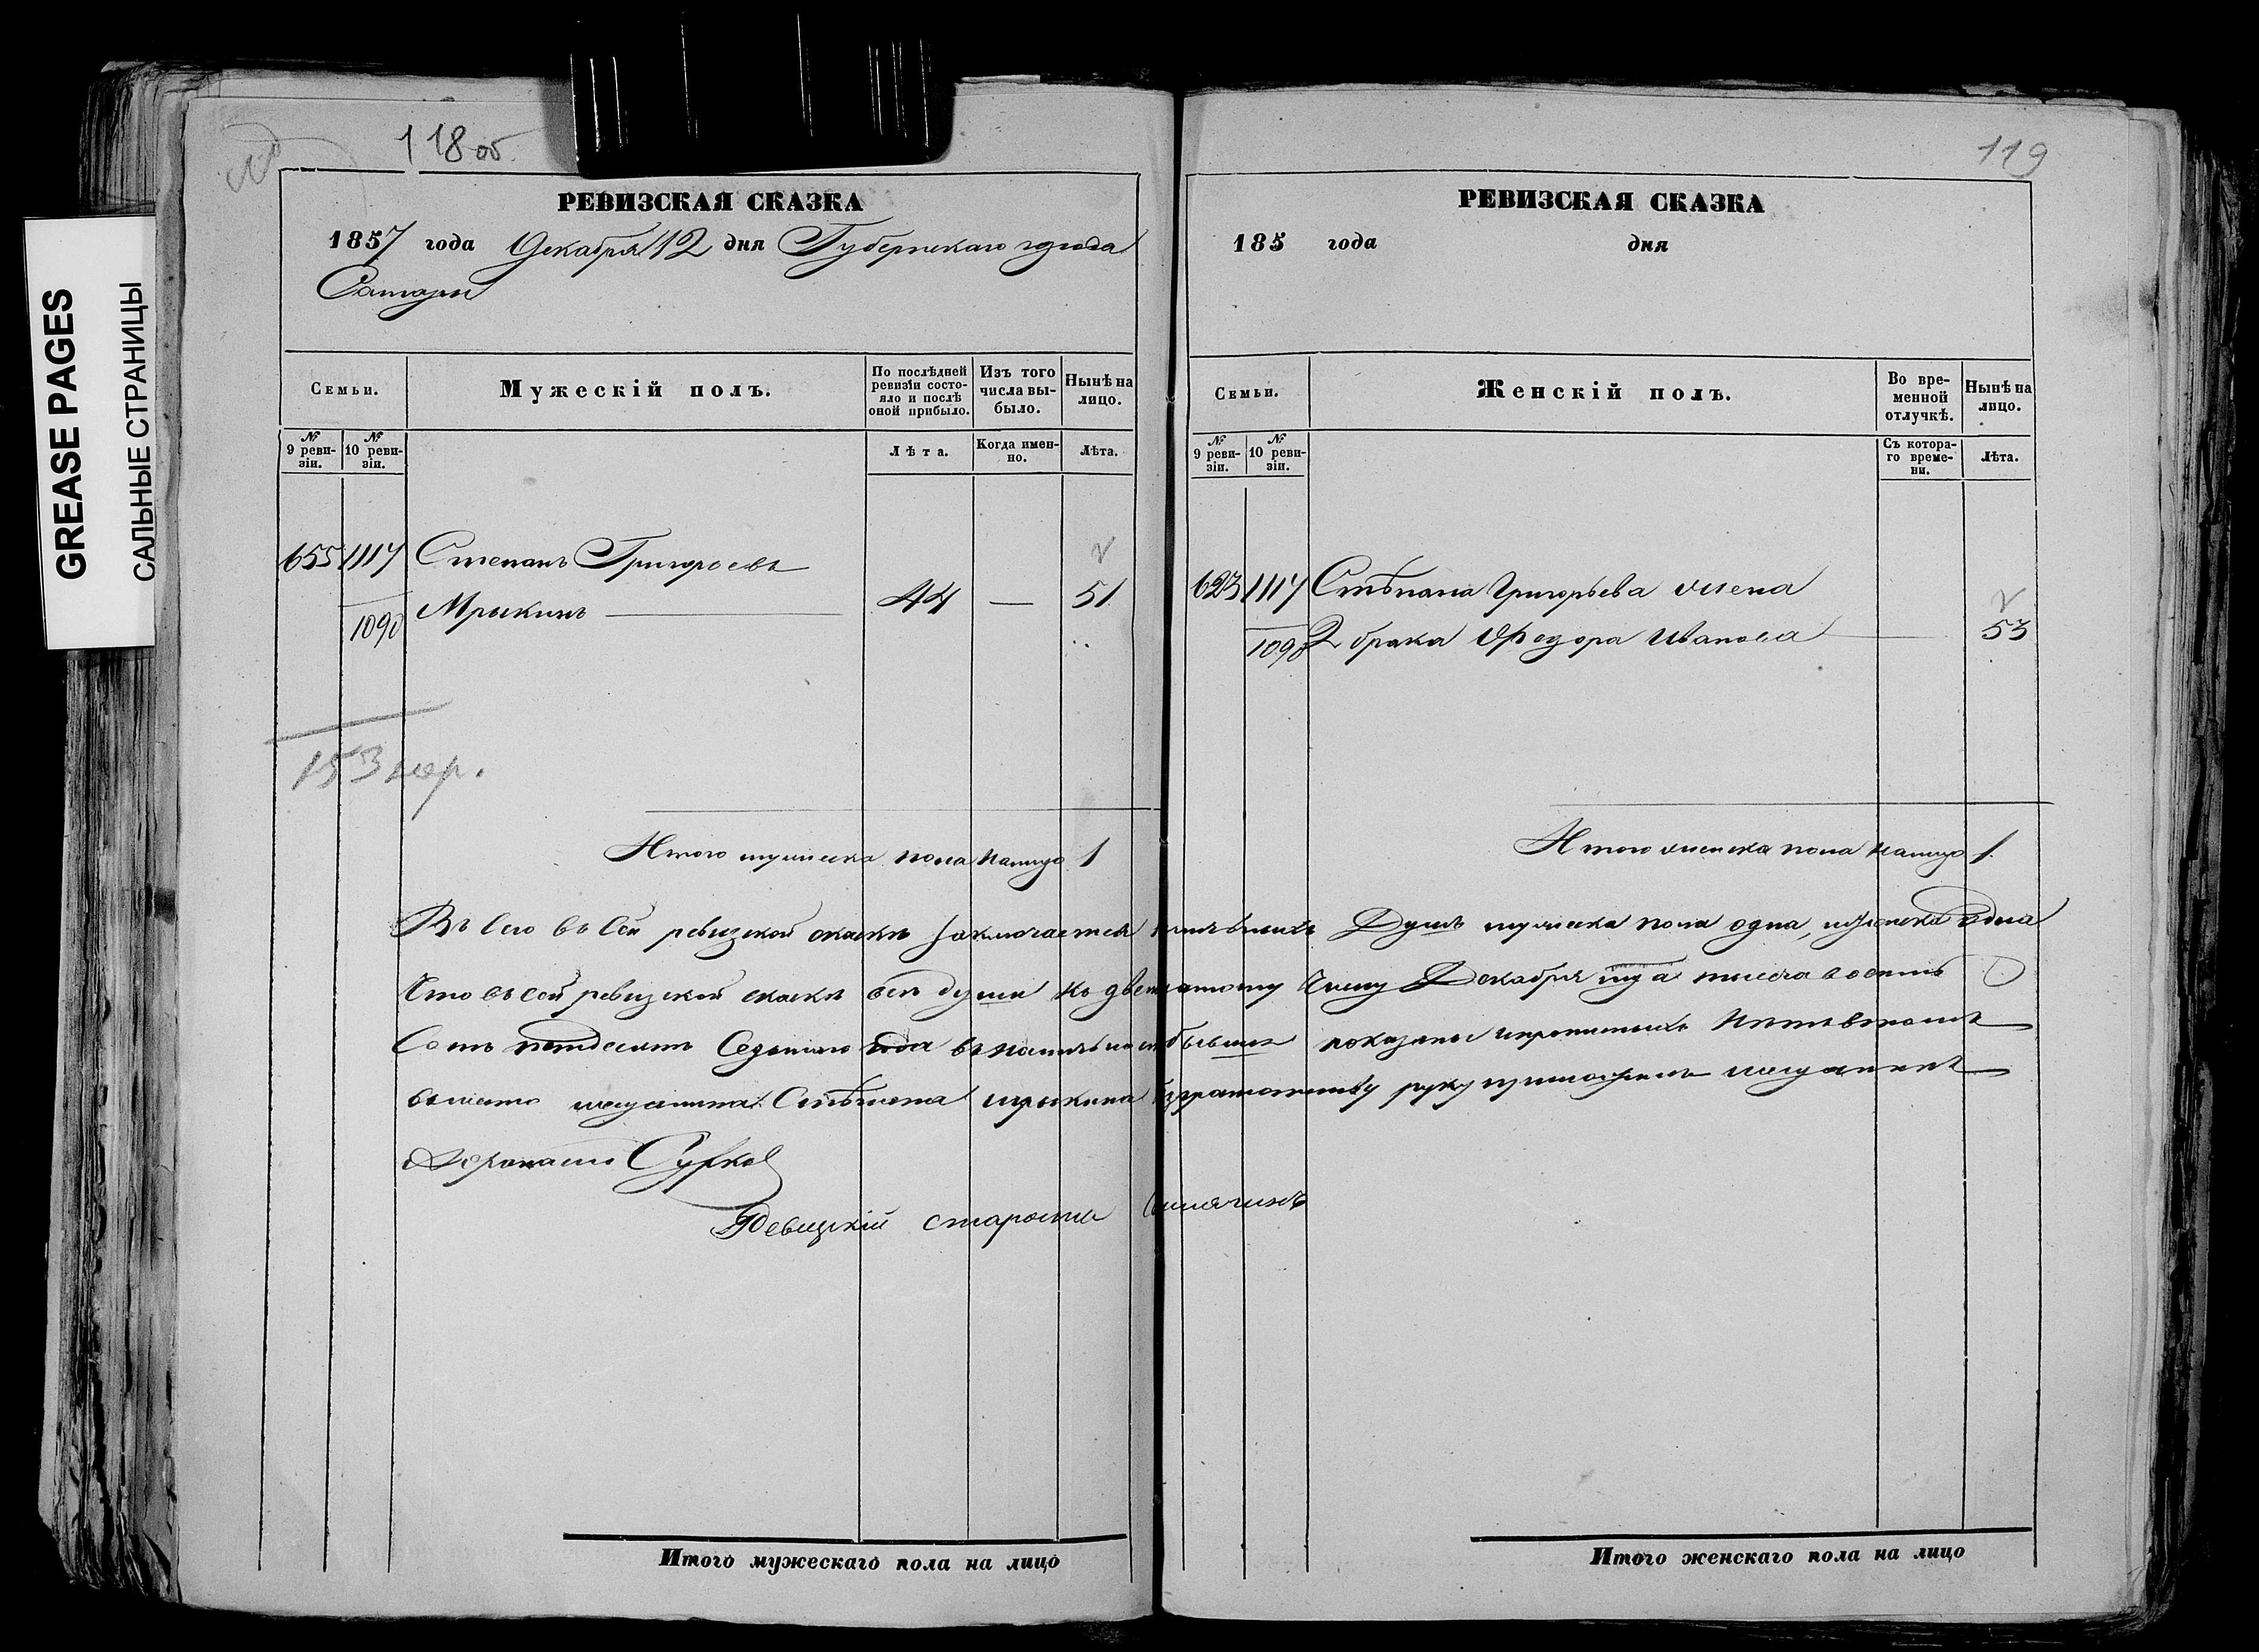 GREASE PAGES
САЛЬНЫЕ СТРАНИЦЫ
118об.
РЕВИЗСКАЯ СКАЗКА
1857 года Декабря 12 дня Губернскаго города
Самары
Семьи.
Мужескій полъ.
По послѣдней ревизіи состояло и послѣ оной прибыло.
Изъ того числа выбыло.
Нынѣ на лицо.
№ 9 ревизіи.
№ 10 ревизіи.
Лѣта.
Когда именно.
Лѣта.
655 1117 Степанъ Григорьевъ
1090 Мрыкинъ — 44 — 51
153 мер.
Итого мужеска пола налицо 1
119
РЕВИЗСКАЯ СКАЗКА
185 года дня
Семьи.
Женскій полъ.
Во временной отлучкѣ.
Нынѣ на лицо.
№ 9 ревизіи.
№ 10 ревизіи.
Съ котораго времени.
Лѣта.
623 1117 Стѣпана Григорьева жена
1090 2 брака Федора Иванова 53
Итого женска пола налицо 1.
Въ сей ревизской сказки заключается Душъ мужеска пола одна, женска одна
Что въ сей ревизской сказкѣ всѣ души Декабря тысяча восемь
Сотъ пятдесятъ Седьмаго года показаны
вместо мещанина Стѣпана мрыкина руку приложилъ мещанинъ
Сурков
Ревизскій староста
Итого мужескаго пола на лицо
Итого женскаго пола на лицо